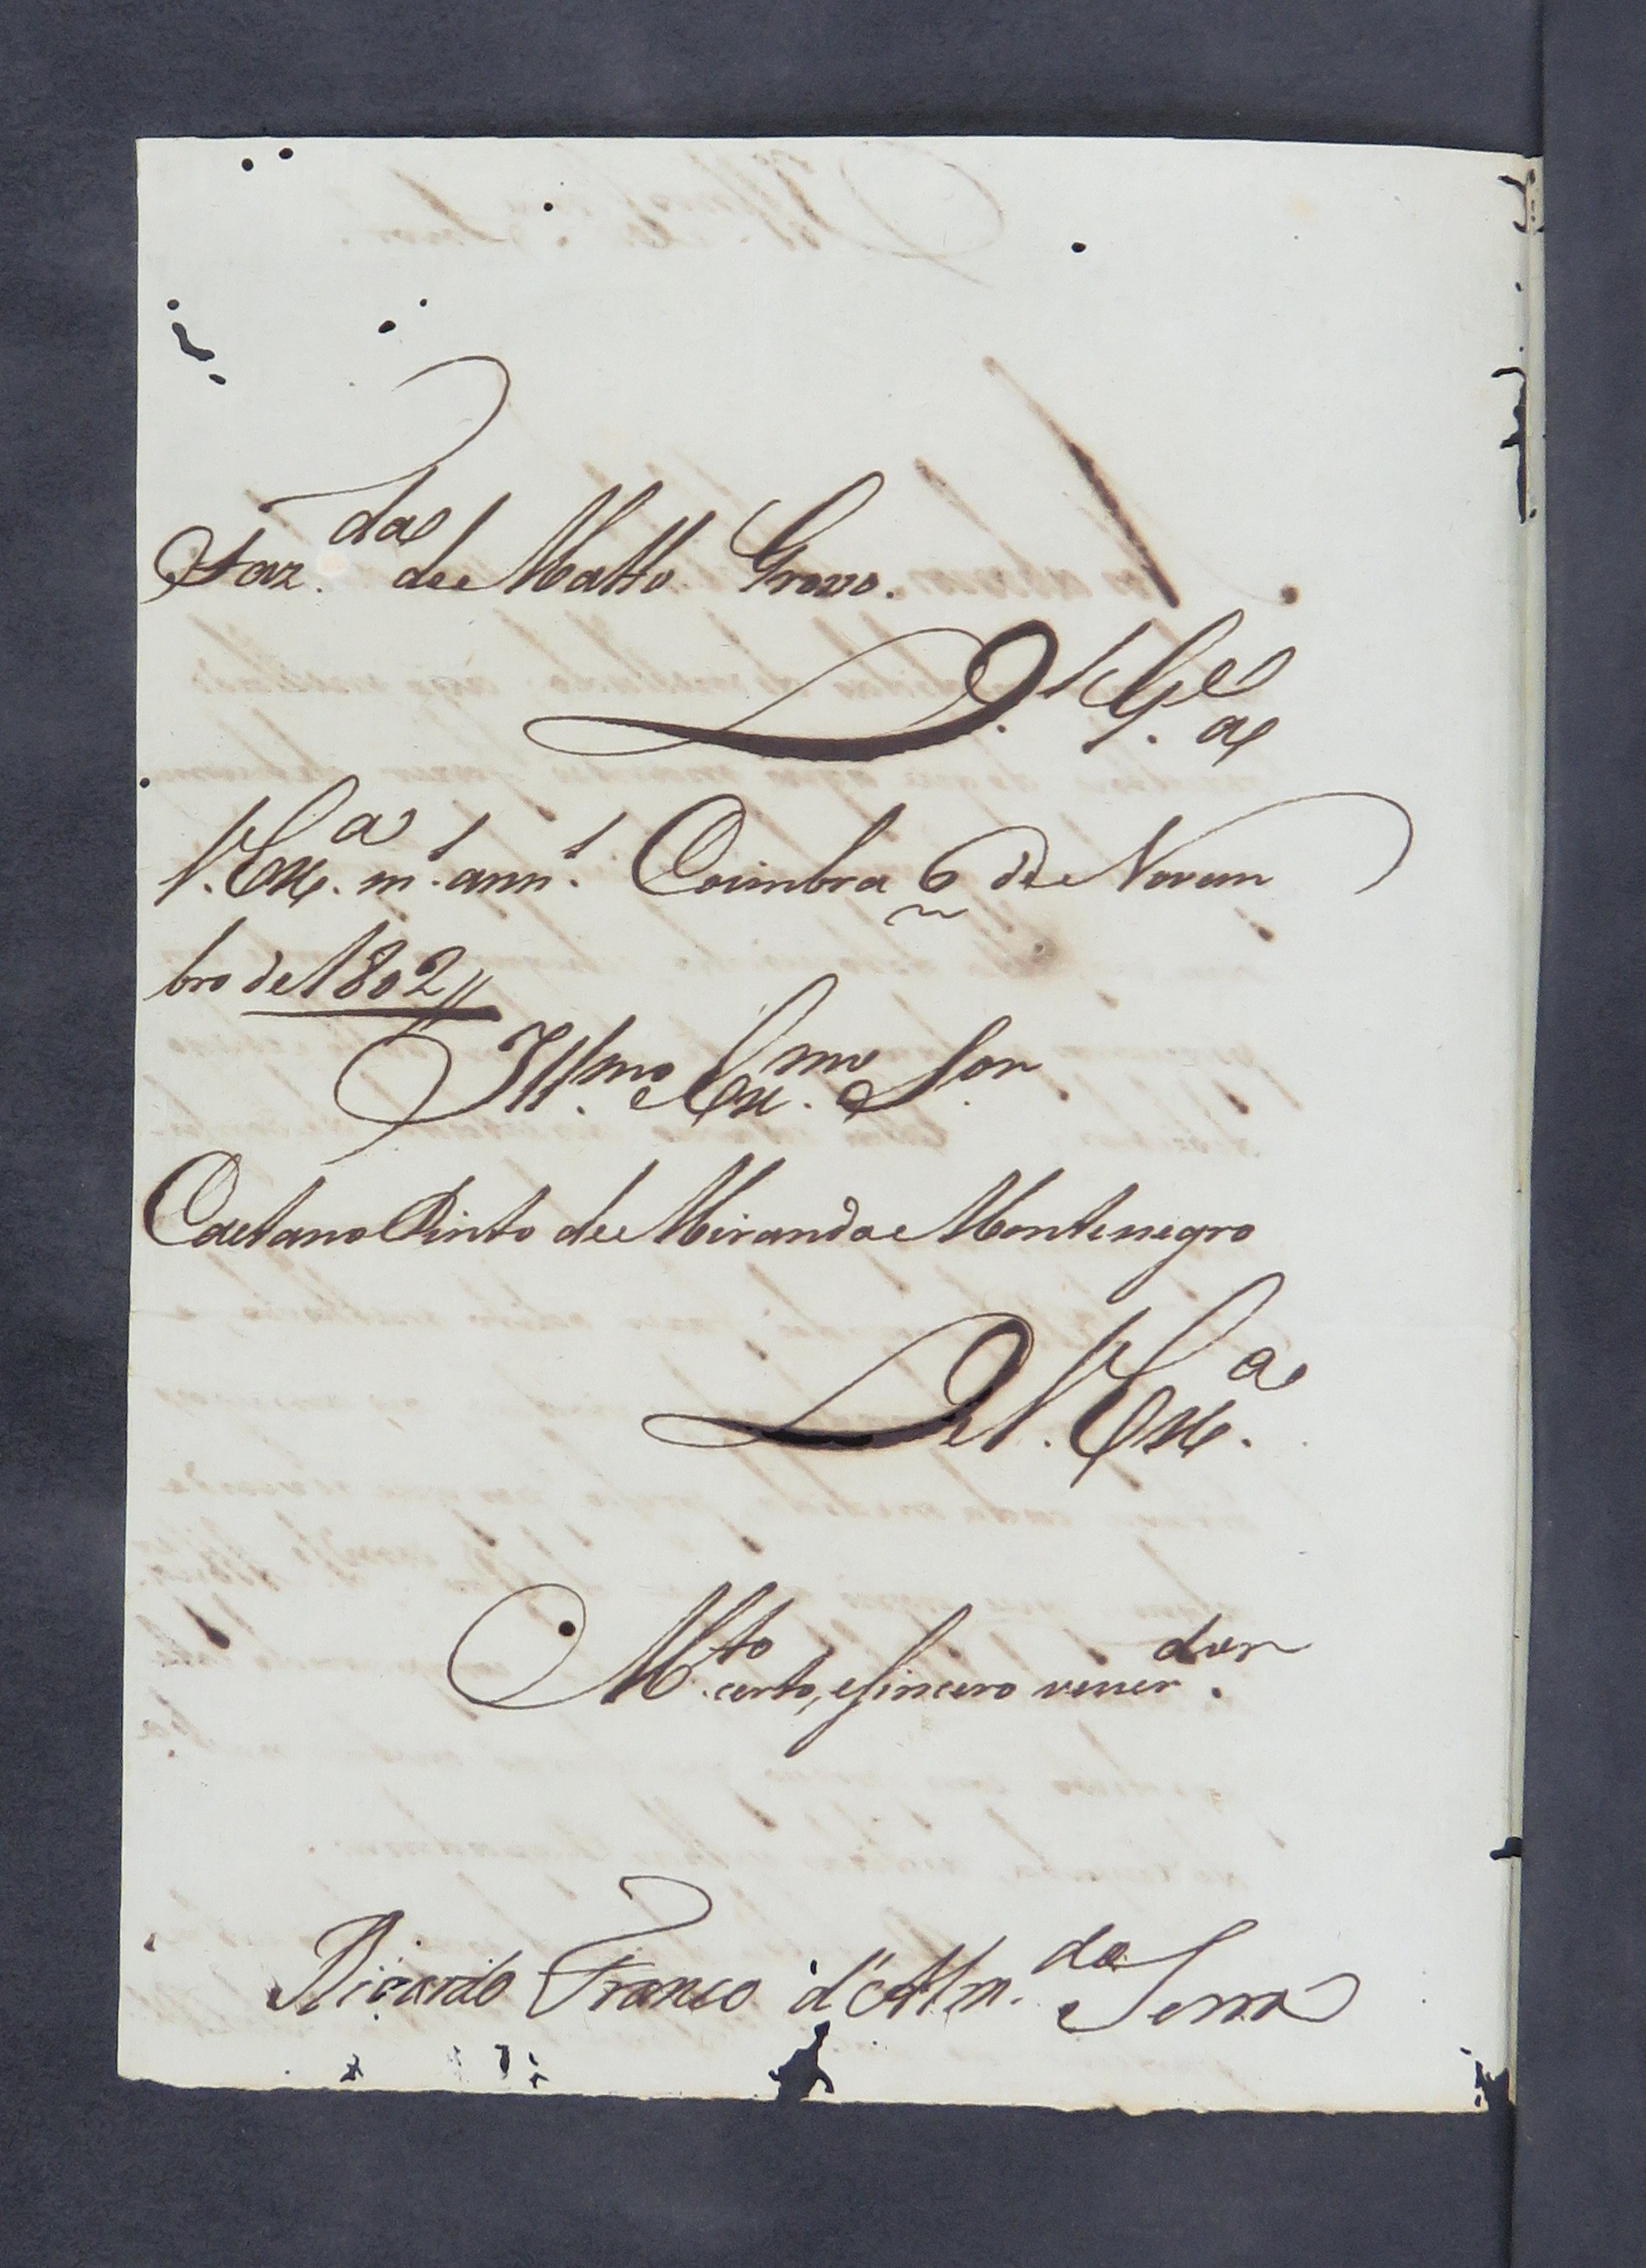 Faz.da de Matto Grosso.
D.s G.e a
V. Ex.a m.s ann.s Coimbra 6 de Novem
bro de 1802//
Ill.mo e Ex.mo Snr
Caetano Pinto de Miranda Montenegro
De V. Ex.a
M.to certo, e sincero vener.dor
Ricardo Franco d'Alm.da Serra